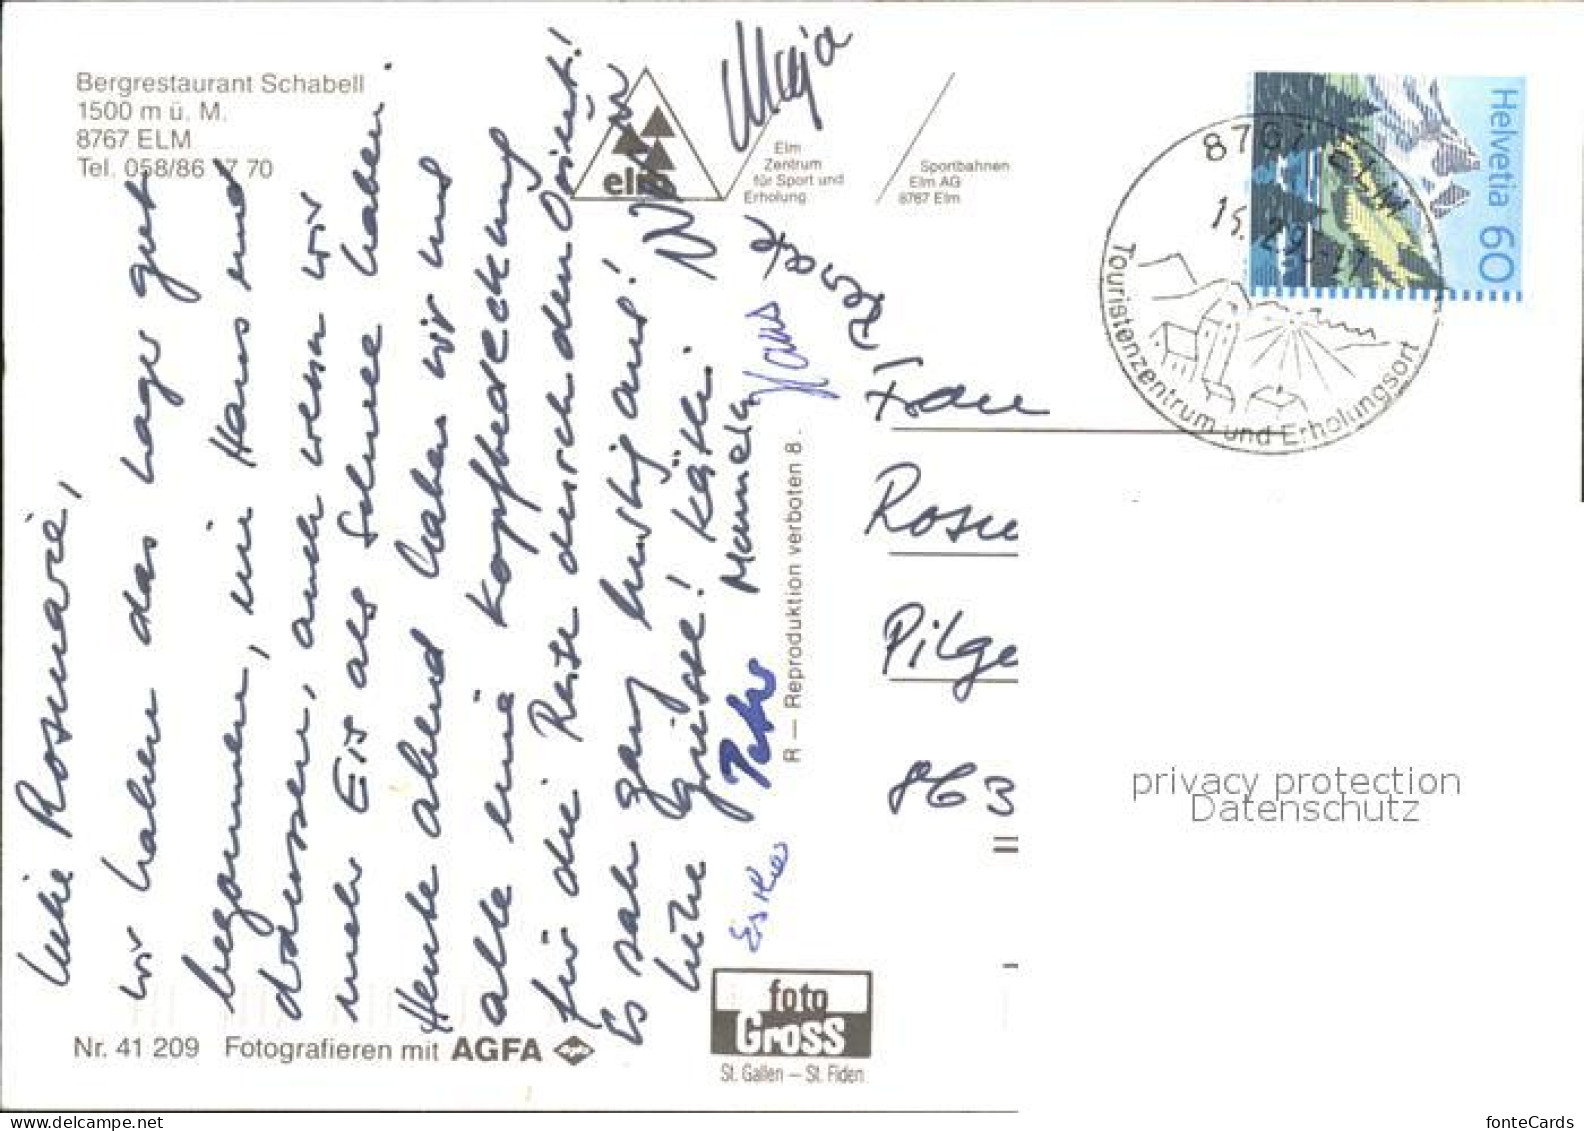 Bergrestaurant Schabell
1500 m ü. M.
8767 ELM
Tel. 058/86 17 70
Liebe Rosmarie,
wir haben das Lager gut
begonnen, im Haus und
draussen, auch wenn wir
mehr Eis als Schnee haben.
Heute abend haben wir uns
alle eine Kopfbedeckung
für die Reise durch den Orient!
Es sah ganz lustig aus!
Liebe Grüsse! Käthi
Esther Peter Manuela Hans Renate
Maja
elm
Elm
Zentrum
für Sport und
Erholung
Sportbahnen
Elm AG
8767 Elm
Helvetia 60
8767 ELM
Touristenzentrum und Erholungsort
R — Reproduktion verboten 8.
Frau
Rosm
Pilge
863
privacy protection
Datenschutz
Nr. 41 209 Fotografieren mit AGFA
foto
Gross
St. Gallen – St. Fiden
fonteCards